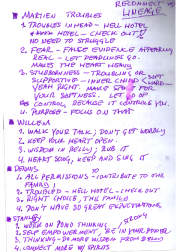 RECONNECT W/
LINEAGE
MARTIEN TROUBLES
1 TROUBLES IN HEAD - HELL HOTEL
HELL HOTEL - CHECK OUT
NO NEED TO STRUGGLE
2. FEAR - FALSE EVIDENCE APPEARING
REAL. LET DEADLINES GO.
MAKES THE HEART
3. STUBBORNNESS - TROUBLING OR
SUPPORTIVE - INNER CHILD SOFT
YEAH RIGHT. MAKE
YOUR SOFTNESS. LET GO OF
CONTROL, BECAUSE IT CONTROLS YOU.
4. PURPOSE - FOCUS ON THAT
WILLEM
1. WALK YOUR TALK; DON'T GET WOBBLY
2. KEEP YOUR HEART OPEN
3. WISDOM IN BELLY; USE IT
4. HEART SONG, KEEP AND SING IT
DENNIS
1. ALL PERMISSIONS - CONTRIBUTE TO THE
FAMILY
2. TROUBLED - HELL HOTEL - CHECK OUT
3. RIGHT CHOICE, THIS FAMILY
4. DON'T HAVE SO GREAT EXPECTATIONS
STANLEY
1. WORK ON POND THINKING
2. SELF EMPOWERMENT, BE IN YOUR POWER
3. THINKING - DO MORE WISDOM FROM BELLY
4. CONNECT MORE W/ SPIRIT